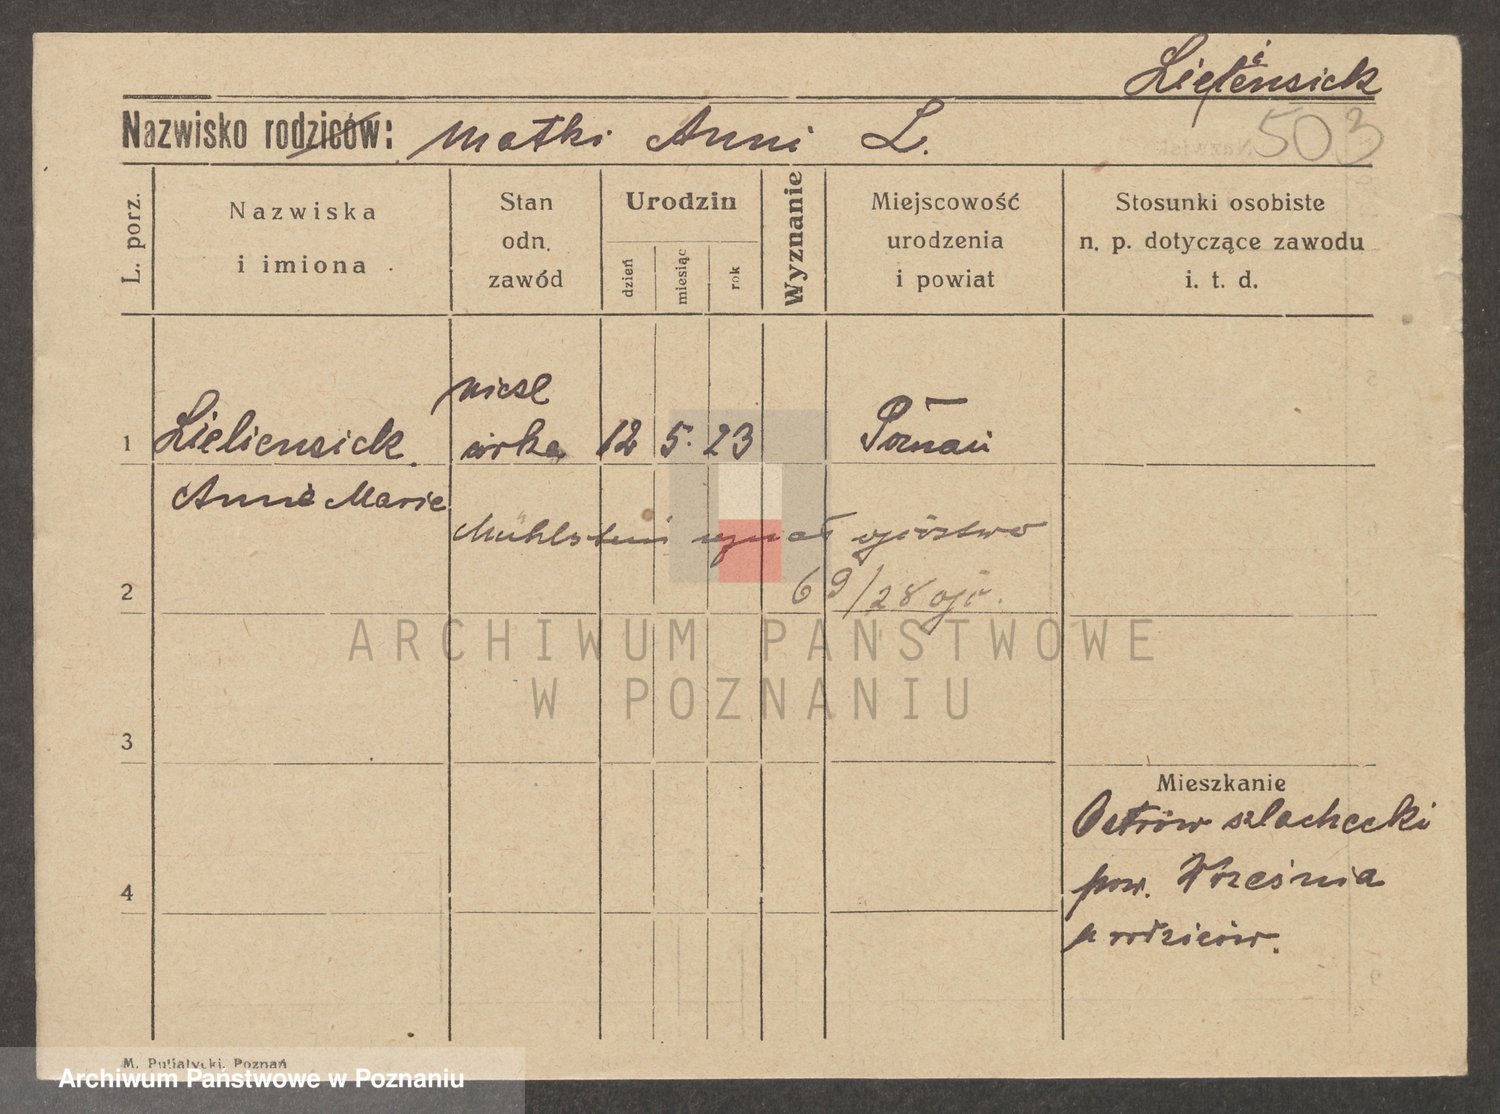 Nazwisko rodziców: Matki Anni L.
503
L. porz.
Nazwiska
i imiona
Stan
odn.
zawód
Urodzin
dzień
miesiąc
rok
Wyznanie
Miejscowość
urodzenia
i powiat
Stosunki osobiste
n. p. dotyczące zawodu
i. t. d.
1 Lieliensick nieśl
córka 12 5. 23 Poznań
Anne Marie
Mühlstein uznał ojcostwo
2 69/28 ojc.
ARCHIWUM PAŃSTWOWE
W POZNANIU
3
Mieszkanie
Ostrów szlachecki
4 pow. Września
u rodziców.
M. Putiatycki, Poznań
Archiwum Państwowe w Poznaniu